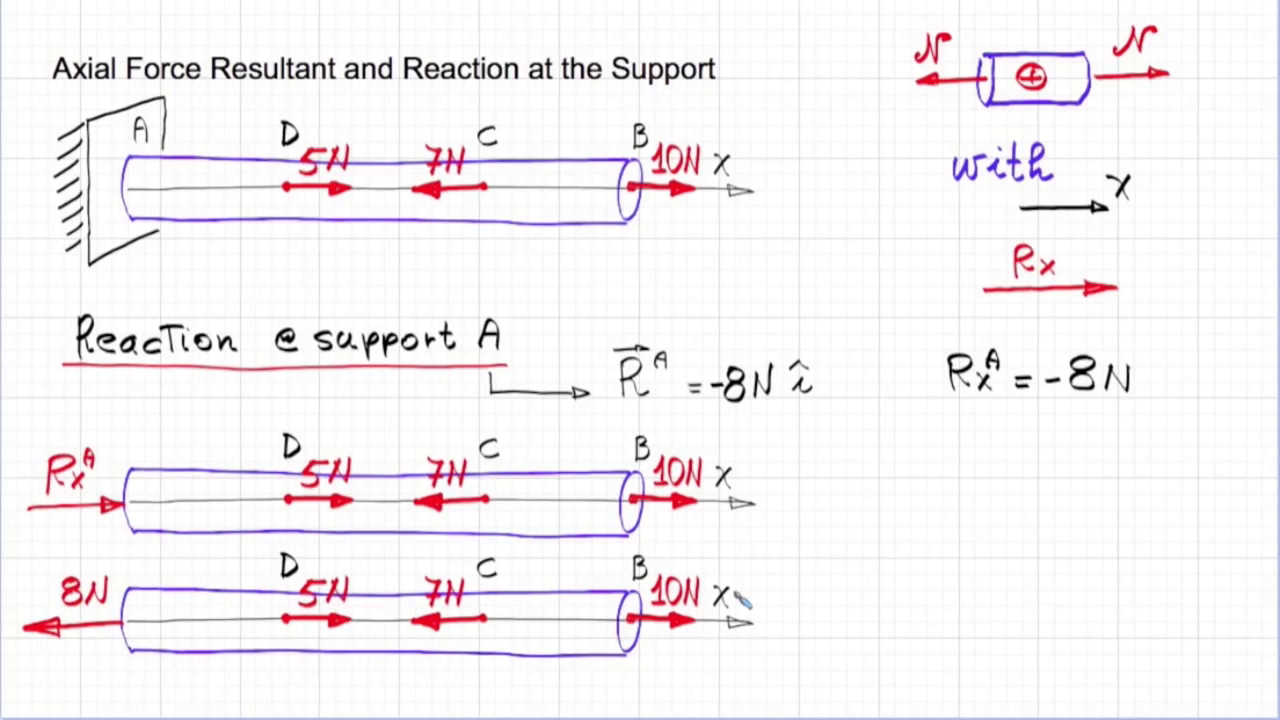 N N
Axial Force Resultant and Reaction at the Support
+
A D 5N 7N C B 10N x
with
x
Rx
Reaction @ support A
R^A = -8N î
Rx^A = -8N
Rx^A D 5N 7N C B 10N x
8N D 5N 7N C B 10N x